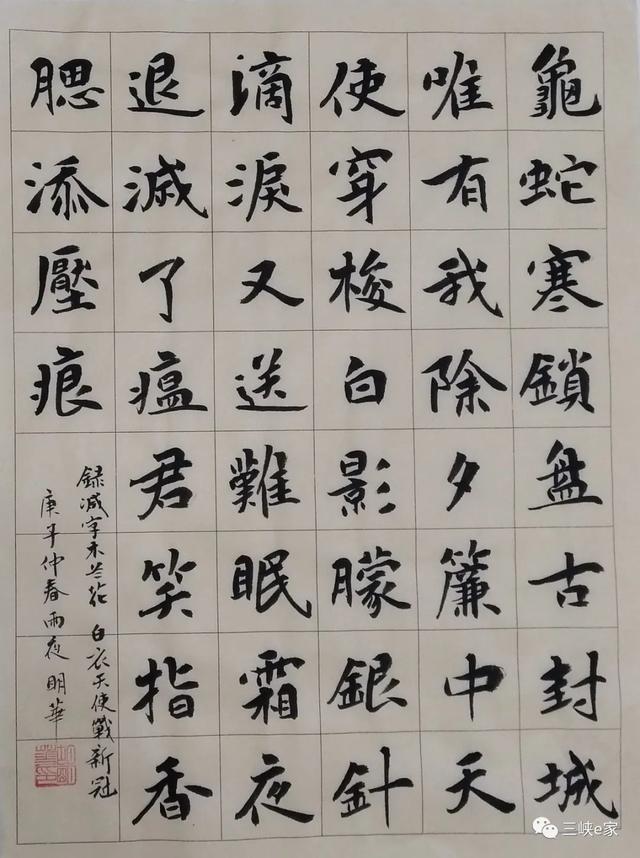 龜蛇寒鎖盘古封城
唯有我除夕簾中天
使穿梭白影朦銀針
滴淚又送難眠霜夜
退滅了瘟君笑指香
腮添壓痕
録减字木兰花 白衣天使戰新冠
庚子仲春雨夜 明華
三峡e家